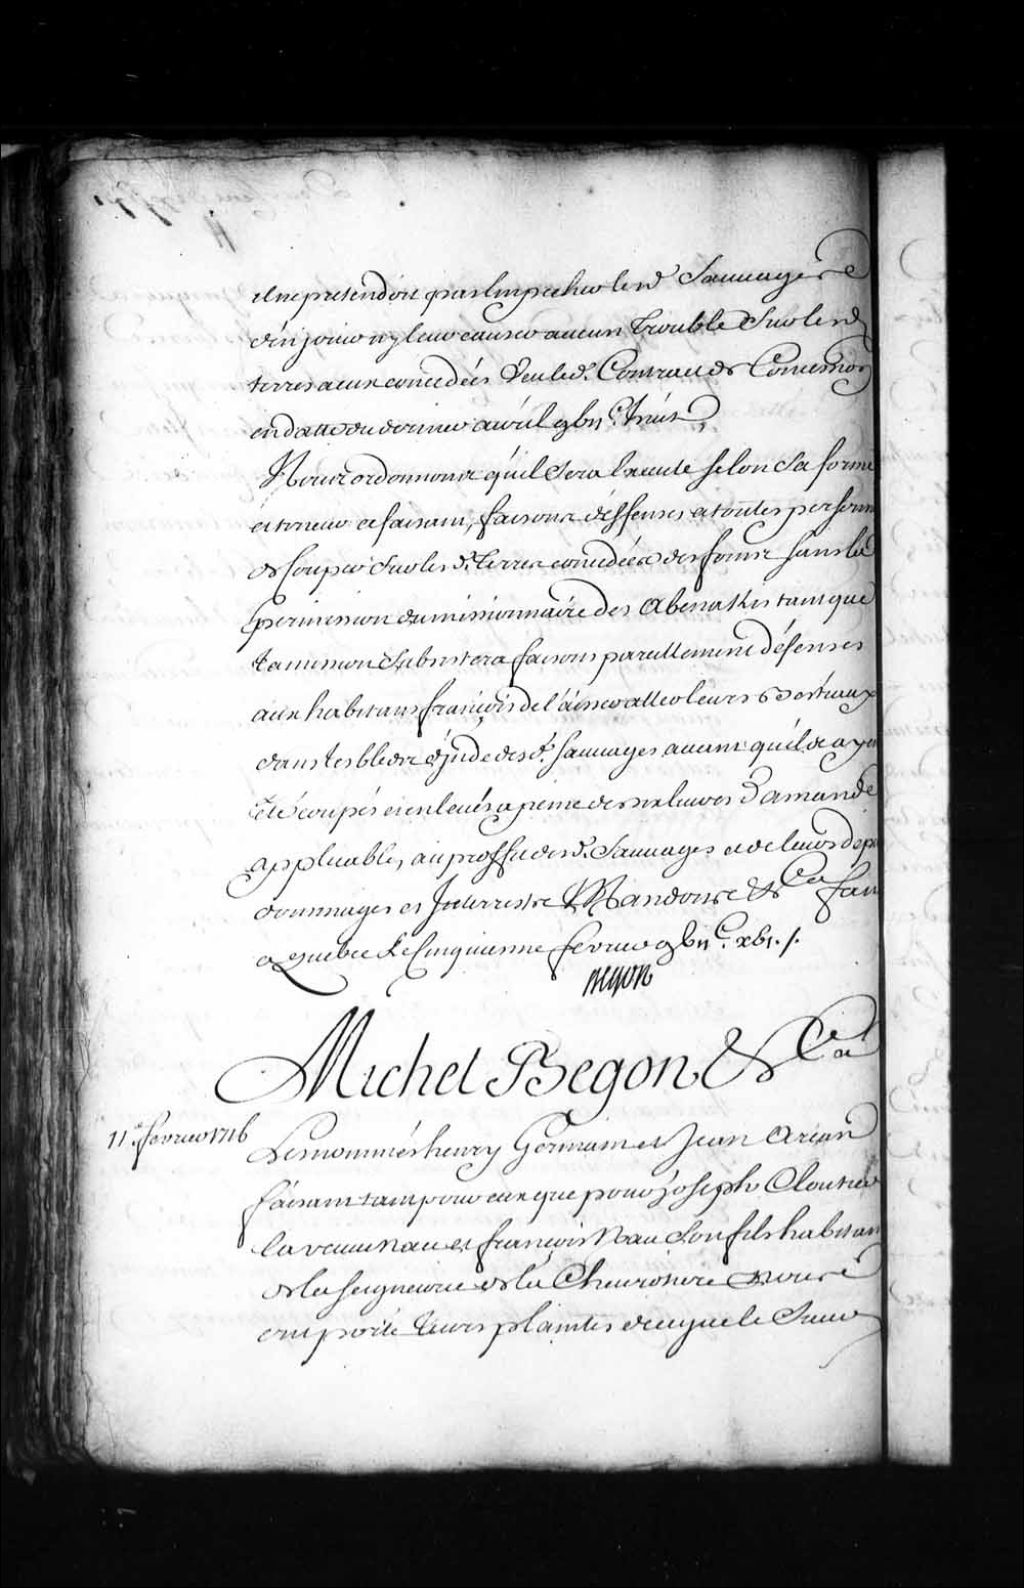 il ne pretendoit pas empecher lesd. Sauvages
d'en jouir ny leur causer aucun trouble sur lesd
terres a eux concedées Veu led. Contract de Concession
en datte du dernier avril gbii.c huit,
Nous ordonnons qu'il sera Executé selon sa forme
et teneur ce faisant, faisons déffenses a toutes personn
de Couper sur lesd. terres concedées des foins sans la
permission du missionnaire des Abenakis tant que
la mission subsistera faisons pareillement défenses
aux habitans françois de laisser aller leurs bestiaux
dans les bleds d'jnde desd. Sauvages avant qu'ils ayen
été coupés et enlevés a peine de dix livres D'amande
applicable, au proffit desd. Sauvages et de leurs dépe
dommages et Interrests Mandons &ca fait
a quebec Le Cinquieme fevrier gbii.c xbi./.
Begon
Michel Begon &Ca
11e. fevrier 1716
Les nommés henry Germain et Jean Arian
faisant tant pour eux que pour joseph Cloutier
la veuve Nau et françois Nau son fils habitan
de la seigneurie de la Chevrotiere Nous
ont porté leurs plaintes de ce que le Sieur